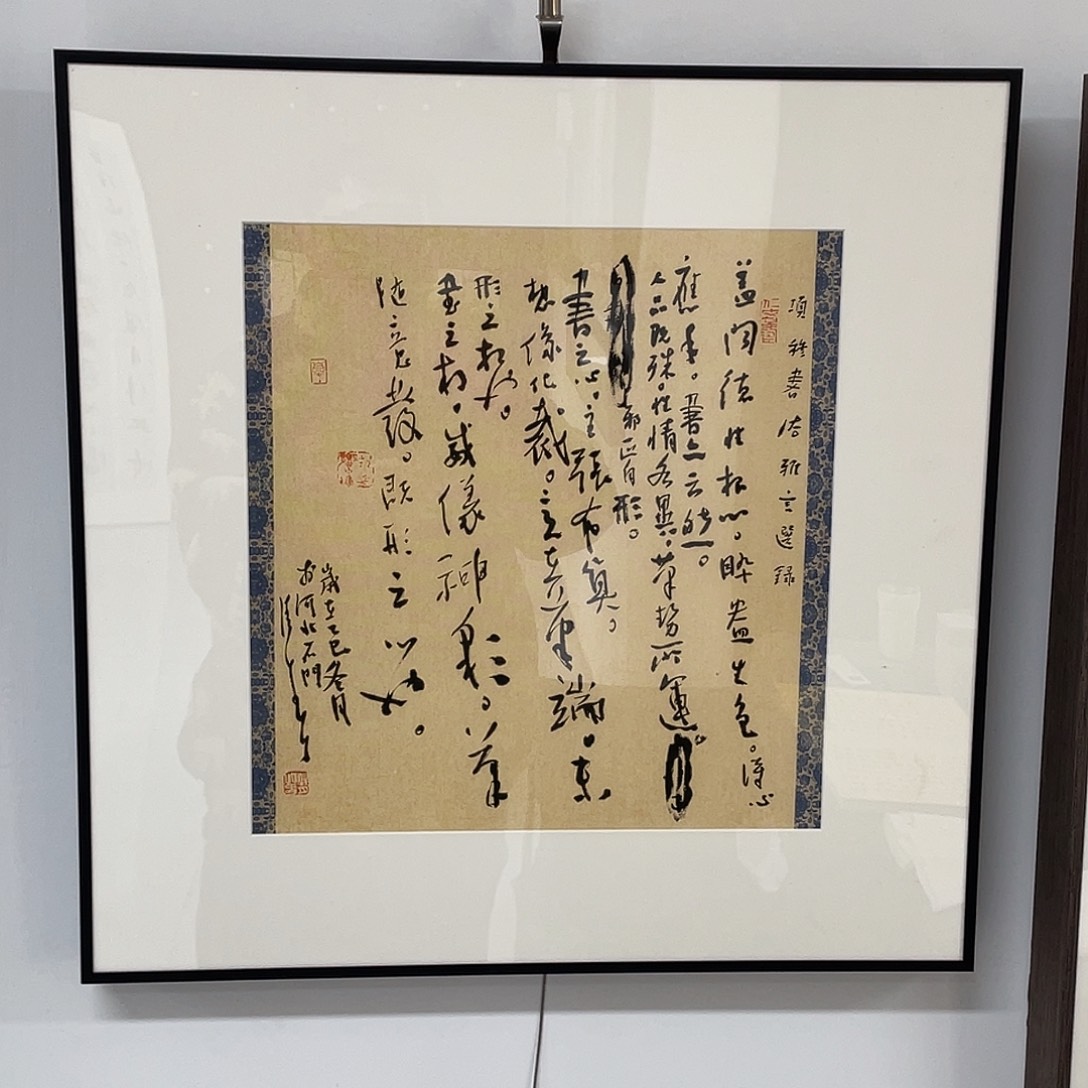 項穆書法雅言選録
盖闻德性根心。睟盎生色。得心
應手。書亦云然。
人品既殊。性情各異。筆势所運
邪正自形。
書之心。主張布算。
想像化裁。意在筆端。未
形之相也。
書之相。威儀神彩。筆
随意發。既形之心也。
歲在乙巳冬月
於河北石門